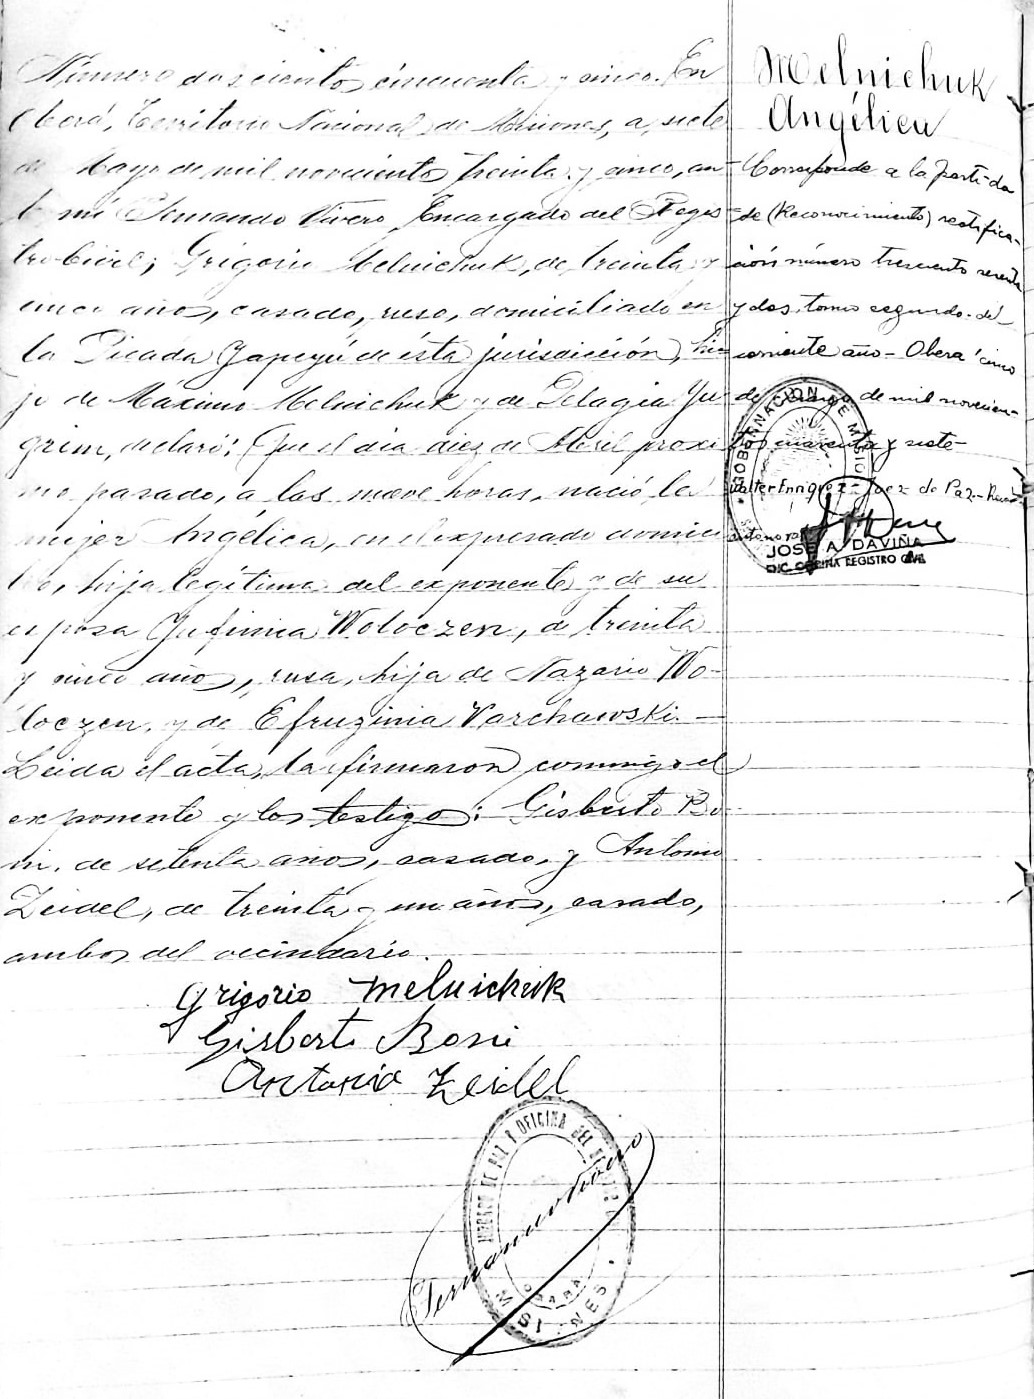 Número doscientos cincuenta y cinco. En
Oberá, Territorio Nacional de Misiones, a siete
de Mayo de mil novecientos treinta y cinco, an-
te mí Fernando Vivero, Encargado del Regis-
tro Civil; Grigorio Melnichuk, de treinta y
cinco años, casado, ruso, domiciliado en
la Picada Yapeyú de ésta jurisdicción, hi-
jo de Máximo Melnichuk y de Pelagia
declaró: Que el día diez de Abril próxi-
mo pasado, a las nueve horas, nació la
mujer Angélica, en el expresado domici-
lio, hija legítima del exponente y de su
esposa Woloczen, de treinta
y cinco años, rusa, hija de Nazario Wo-
loczen, y de Efruzinia Varchawski. —
Leida el acta, la firmaron conmigo el
exponente y los testigos: Gisberto Bo-
ni, de setenta años, casado, y Antonio
Zeidel, de treinta y un años, casado,
ambos del vecindario.
Grigorio Melnichuk
Gisberto Boni
Antonio Zeidel
JUZGADO DE PAZ Y OFICINA DEL
OBERA
MISIONES
Fernando Vivero
Melnichuk
Angélica
Corresponde a la partida
de (Reconocimiento) rectifica-
ción número trescientos sesenta
y dos, tomo segundo del
corriente año - Oberá cinco
de de mil novecien-
tos cuarenta y siete
Walter Enriquez - Juez de Paz -
GOBERNACION DE MISIONES
JOSE A. DAVIÑA
ENC. OFICINA REGISTRO CIVIL